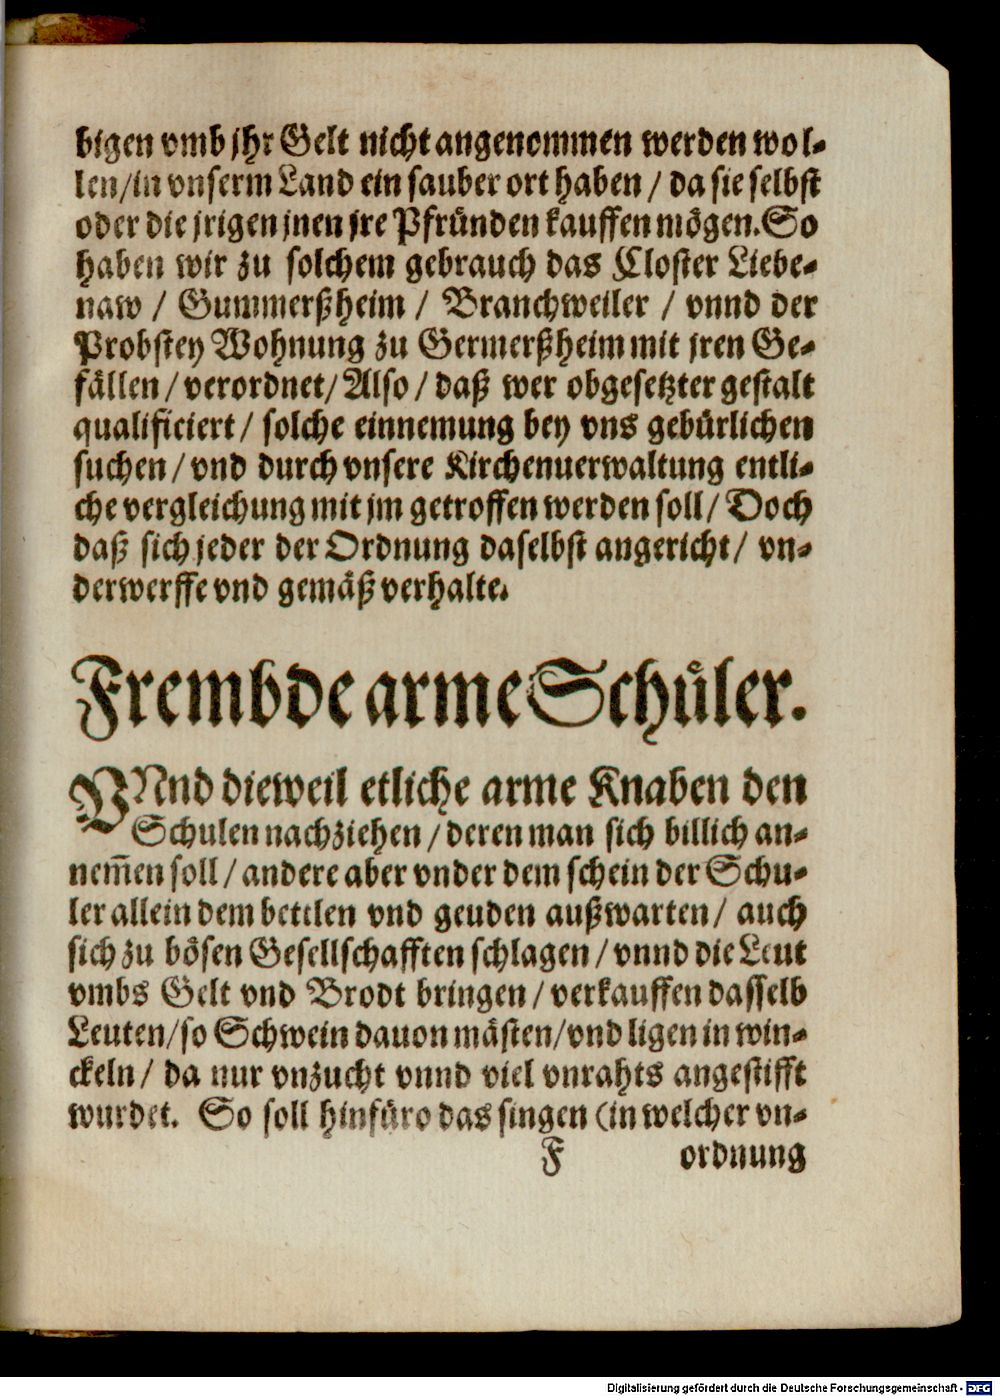 bigen vmb jhr Gelt nicht angenommen werden wol-
len/in vnserm Land ein sauber ort haben / da sie selbst
oder die jrigen jnen jre Pfründen kauffen mögen. So
haben wir zu solchem gebrauch das Closter Liebe-
naw / Gummerßheim / Branchweiler / vnnd der
Probstey Wohnung zu Germerßheim mit jren Ge-
fällen / verordnet/ Also / daß wer obgesetzter gestalt
qualificiert / solche einnemung bey vns gebürlichen
suchen / vnd durch vnsere Kirchenuerwaltung entli-
che vergleichung mit jm getroffen werden soll/ Doch
daß sich jeder der Ordnung daselbst angericht/ vn-
derwerffe vnd gemäß verhalte.
Frembde arme Schůler.
VNnd dieweil etliche arme Knaben den
Schulen nachziehen / deren man sich billich an-
nem̃en soll / andere aber vnder dem schein der Schu-
ler allein dem bettlen vnd geuden außwarten/ auch
sich zu bösen Gesellschafften schlagen / vnnd die Leut
vmbs Gelt vnd Brodt bringen / verkauffen dasselb
Leuten/so Schwein dauon mästen/vnd ligen in win-
ckeln / da nur vnzucht vnnd viel vnrahts angestifft
wurdet. So soll hinfüro das singen (in welcher vn-
F ordnung
Digitalisierung gefördert durch die Deutsche Forschungsgemeinschaft - DFG